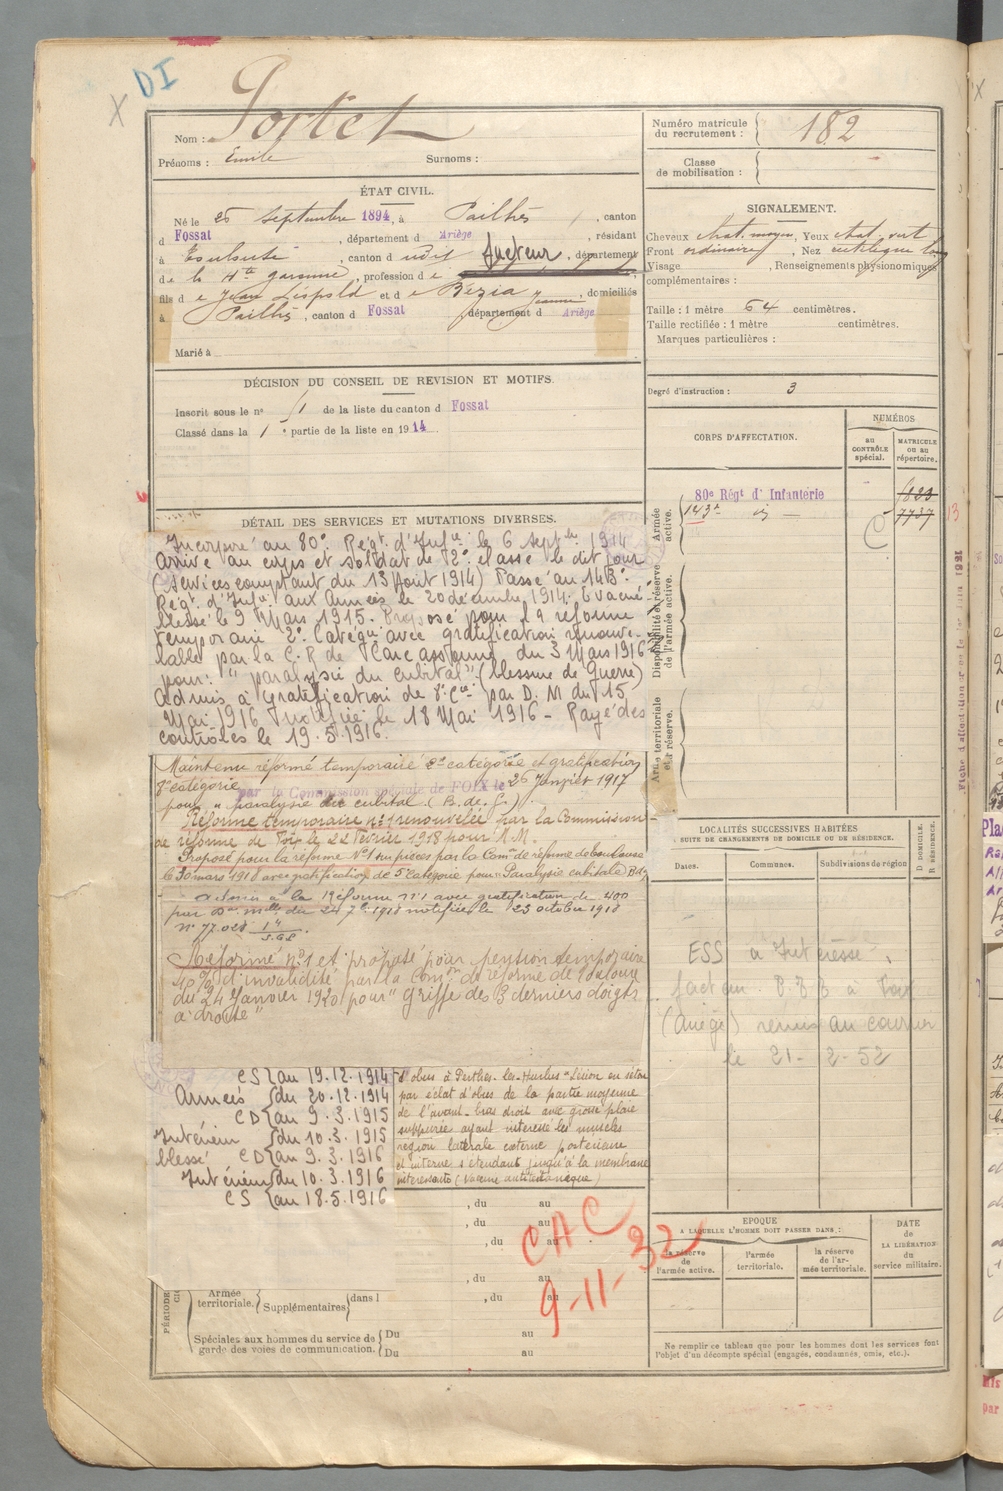 DI
Nom : Portet
Prénoms : Emile Surnoms :
Numéro matricule du recrutement : 182
Classe de mobilisation :
ÉTAT CIVIL.
Né le 25 septembre 1894, à Pailhès, canton
d Fossat, département d Ariège, résidant
à Toulouse, canton d udit, département
de la Hte garonne, profession d e facteur
fils d e Jean Léopold et d e Rezia Jeanne, domiciliés
à Pailhès, canton d Fossat département d Ariège
Marié à
SIGNALEMENT.
Cheveux chat. moyen, Yeux chat. vert
Front ordinaire, Nez rectiligne
Visage , Renseignements physionomiques
complémentaires :
Taille : 1 mètre 64 centimètres.
Taille rectifiée : 1 mètre centimètres.
Marques particulières :
Degré d'instruction : 3
DÉCISION DU CONSEIL DE REVISION ET MOTIFS.
Inscrit sous le n° 51 de la liste du canton d Fossat
Classé dans la 1e partie de la liste en 1914
CORPS D'AFFECTATION.
NUMÉROS
au CONTRÔLE spécial.
MATRICULE ou au répertoire.
Armée active.
80e Régt d'Infanterie
143e
7737
13
Disponibilité et réserve de l'armée active.
Armée territoriale et sa réserve.
DÉTAIL DES SERVICES ET MUTATIONS DIVERSES.
Incorporé au 80e Régt d'Infie le 6 septbre 1914
Arrivé au corps et soldat de 2e classe le dit jour
(services comptant du 13 Août 1914) Passé au 143e
Régt d'Infie aux Armées le 20 décembre 1914. Evacué
blessé le 9 Mars 1915. Proposé pour la réforme
temporaire 2e Catégie avec gratification renouve-
lable par la C.R de Carcassonne du 3 Mars 1916
pour : "paralysie du cubital" (blessure de Guerre)
Admis à gratification de 8e Cie par D. M du 15
Mai 1916 notifiée le 18 Mai 1916 - Rayé des
contrôles le 19.5.1916.
Maintenu réformé temporaire 2e catégorie et gratification
8e catégorie par la Commission spéciale de FOIX le 26 Janvier 1917
pour "paralysie du cubital (B. de G.)
Réforme temporaire n°1 renouvelée par la Commission
de réforme de Foix le 22 Février 1918 pour M.M.
Proposé pour la réforme N°1 sur pièces par la Comon de réforme de Toulouse
le 30 mars 1918 avec gratification de 5e catégorie pour "Paralysie cubitale
Admis à la Réforme n°1 avec gratification de 400
par Don mlle du 24 7bre 1918 notifiée le 23 octobre 1918
n° 77.028
Réformé n°1 et proposé pour pension temporaire
40% d'invalidité par la Comon de réforme de Toulouse
du 24 Janvier 1920 pour "Griffe des 3 derniers doigts
à droite"
CS { au 19.12.1914
Armées { du 20.12.1914
CD { au 9.3.1915
Intérieur { du 10.3.1915
blessé CD { au 9.3.1916
Intérieur { du 10.3.1916
CS { au 18.5.1916
d'obus à Perthes-les-Hurlus "Lésion en séton
par éclat d'obus de la partie moyenne
de l'avant-bras droit avec grosse plaie
suppurée ayant intéressé les muscles
région latérale externe postérieure
et interne s'étendant jusqu'à la membrane
interosseuse (Vaccine antitétanique)
LOCALITÉS SUCCESSIVES HABITÉES
SUITE DE CHANGEMENTS DE DOMICILE OU DE RÉSIDENCE.
Dates. Communes. Subdivisions de région
D DOMICILE.
R RÉSIDENCE.
ESS a Intéressé
facteur
(Ariège) remis au courrier
le 21-2-52
, du au
, du au
, du au
, du au
, du au
CAC
9-11-32
Armée territoriale. { Supplémentaires { dans l
Spéciales aux hommes du service de garde des voies de communication. { Du au
Du au
EPOQUE
A LAQUELLE L'HOMME DOIT PASSER DANS :
la réserve de l'armée active.
l'armée territoriale.
la réserve de l'armée territoriale.
DATE DE LA LIBÉRATION du service militaire.
Ne remplir ce tableau que pour les hommes dont les services font
l'objet d'un décompte spécial (engagés, condamnés, omis, etc.).